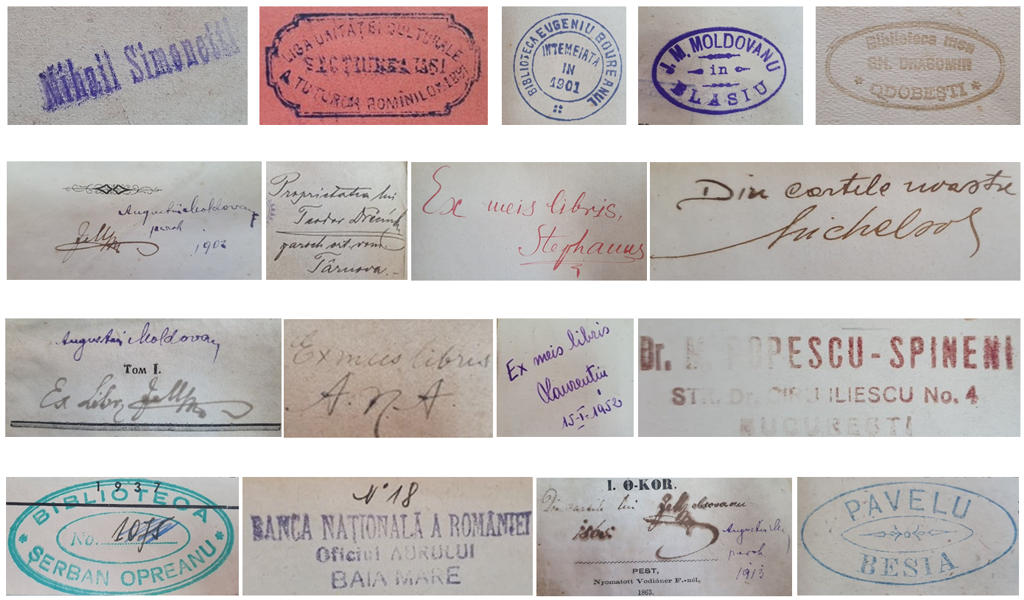 Mihail Simonetti
LIGA UNITĂȚEI CULTURALE
SECȚIUNEA IAȘI
A TUTUROR ROMÎNILOR 1891
BIBLIOTECA EUGENIU BOUREANUL
INTEMEIATA
IN
1901
J. M. MOLDOVANU
in
BLASIU
Biblioteca mea
GH. DRAGOMIR
ODOBEȘTI
Augustin Moldovan
paroh
1902
Proprietatea lui
Teodor
paroch ort. rom.
Târnova.
Ex meis libris,
Stephanus
Din cartile noastre
Augustin Moldovan
TOM I.
Ex Libr.
Ex meis libris
A. N. A.
Ex meis libris
Laurentiu
15-I-1952
Dr. POPESCU-SPINENI
STR. Dr. CIRU ILIESCU No. 4
BUCUREȘTI
1937
BIBLIOTECA
No. 1075
ȘERBAN OPREANU
No 18
BANCA NAȚIONALĂ A ROMÂNIEI
Oficiul AURULUI
BAIA MARE
I. Θ-KOR.
Din cartile lui
1865.
Augustin
paroh
1913
PEST,
Nyomatott Vodiáner F.-nél,
1863.
PAVELU
BESIA